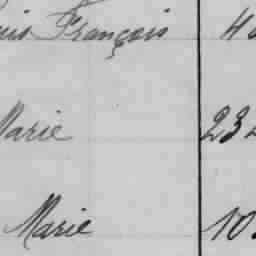 François
Marie 232
Marie 10